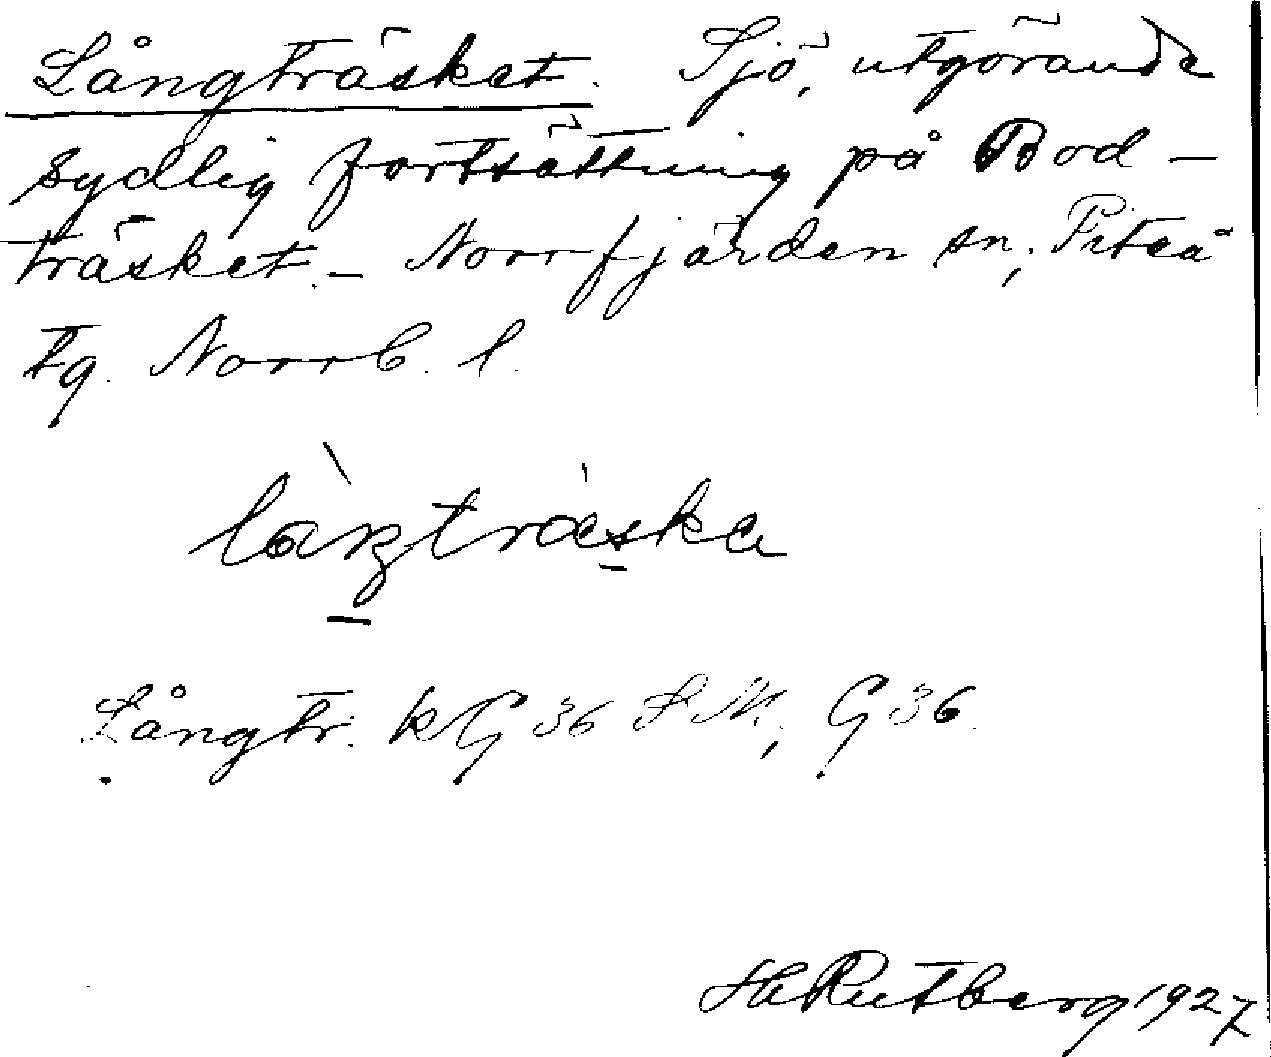 Långträsket. Sjö, utgörande
sydlig fortsättning på Bod-
träsket. - Norrfjärden sn, Piteå
tg. Norrb. l.
Långtr. kG 36 SM, G 36.
H Rutberg 1927